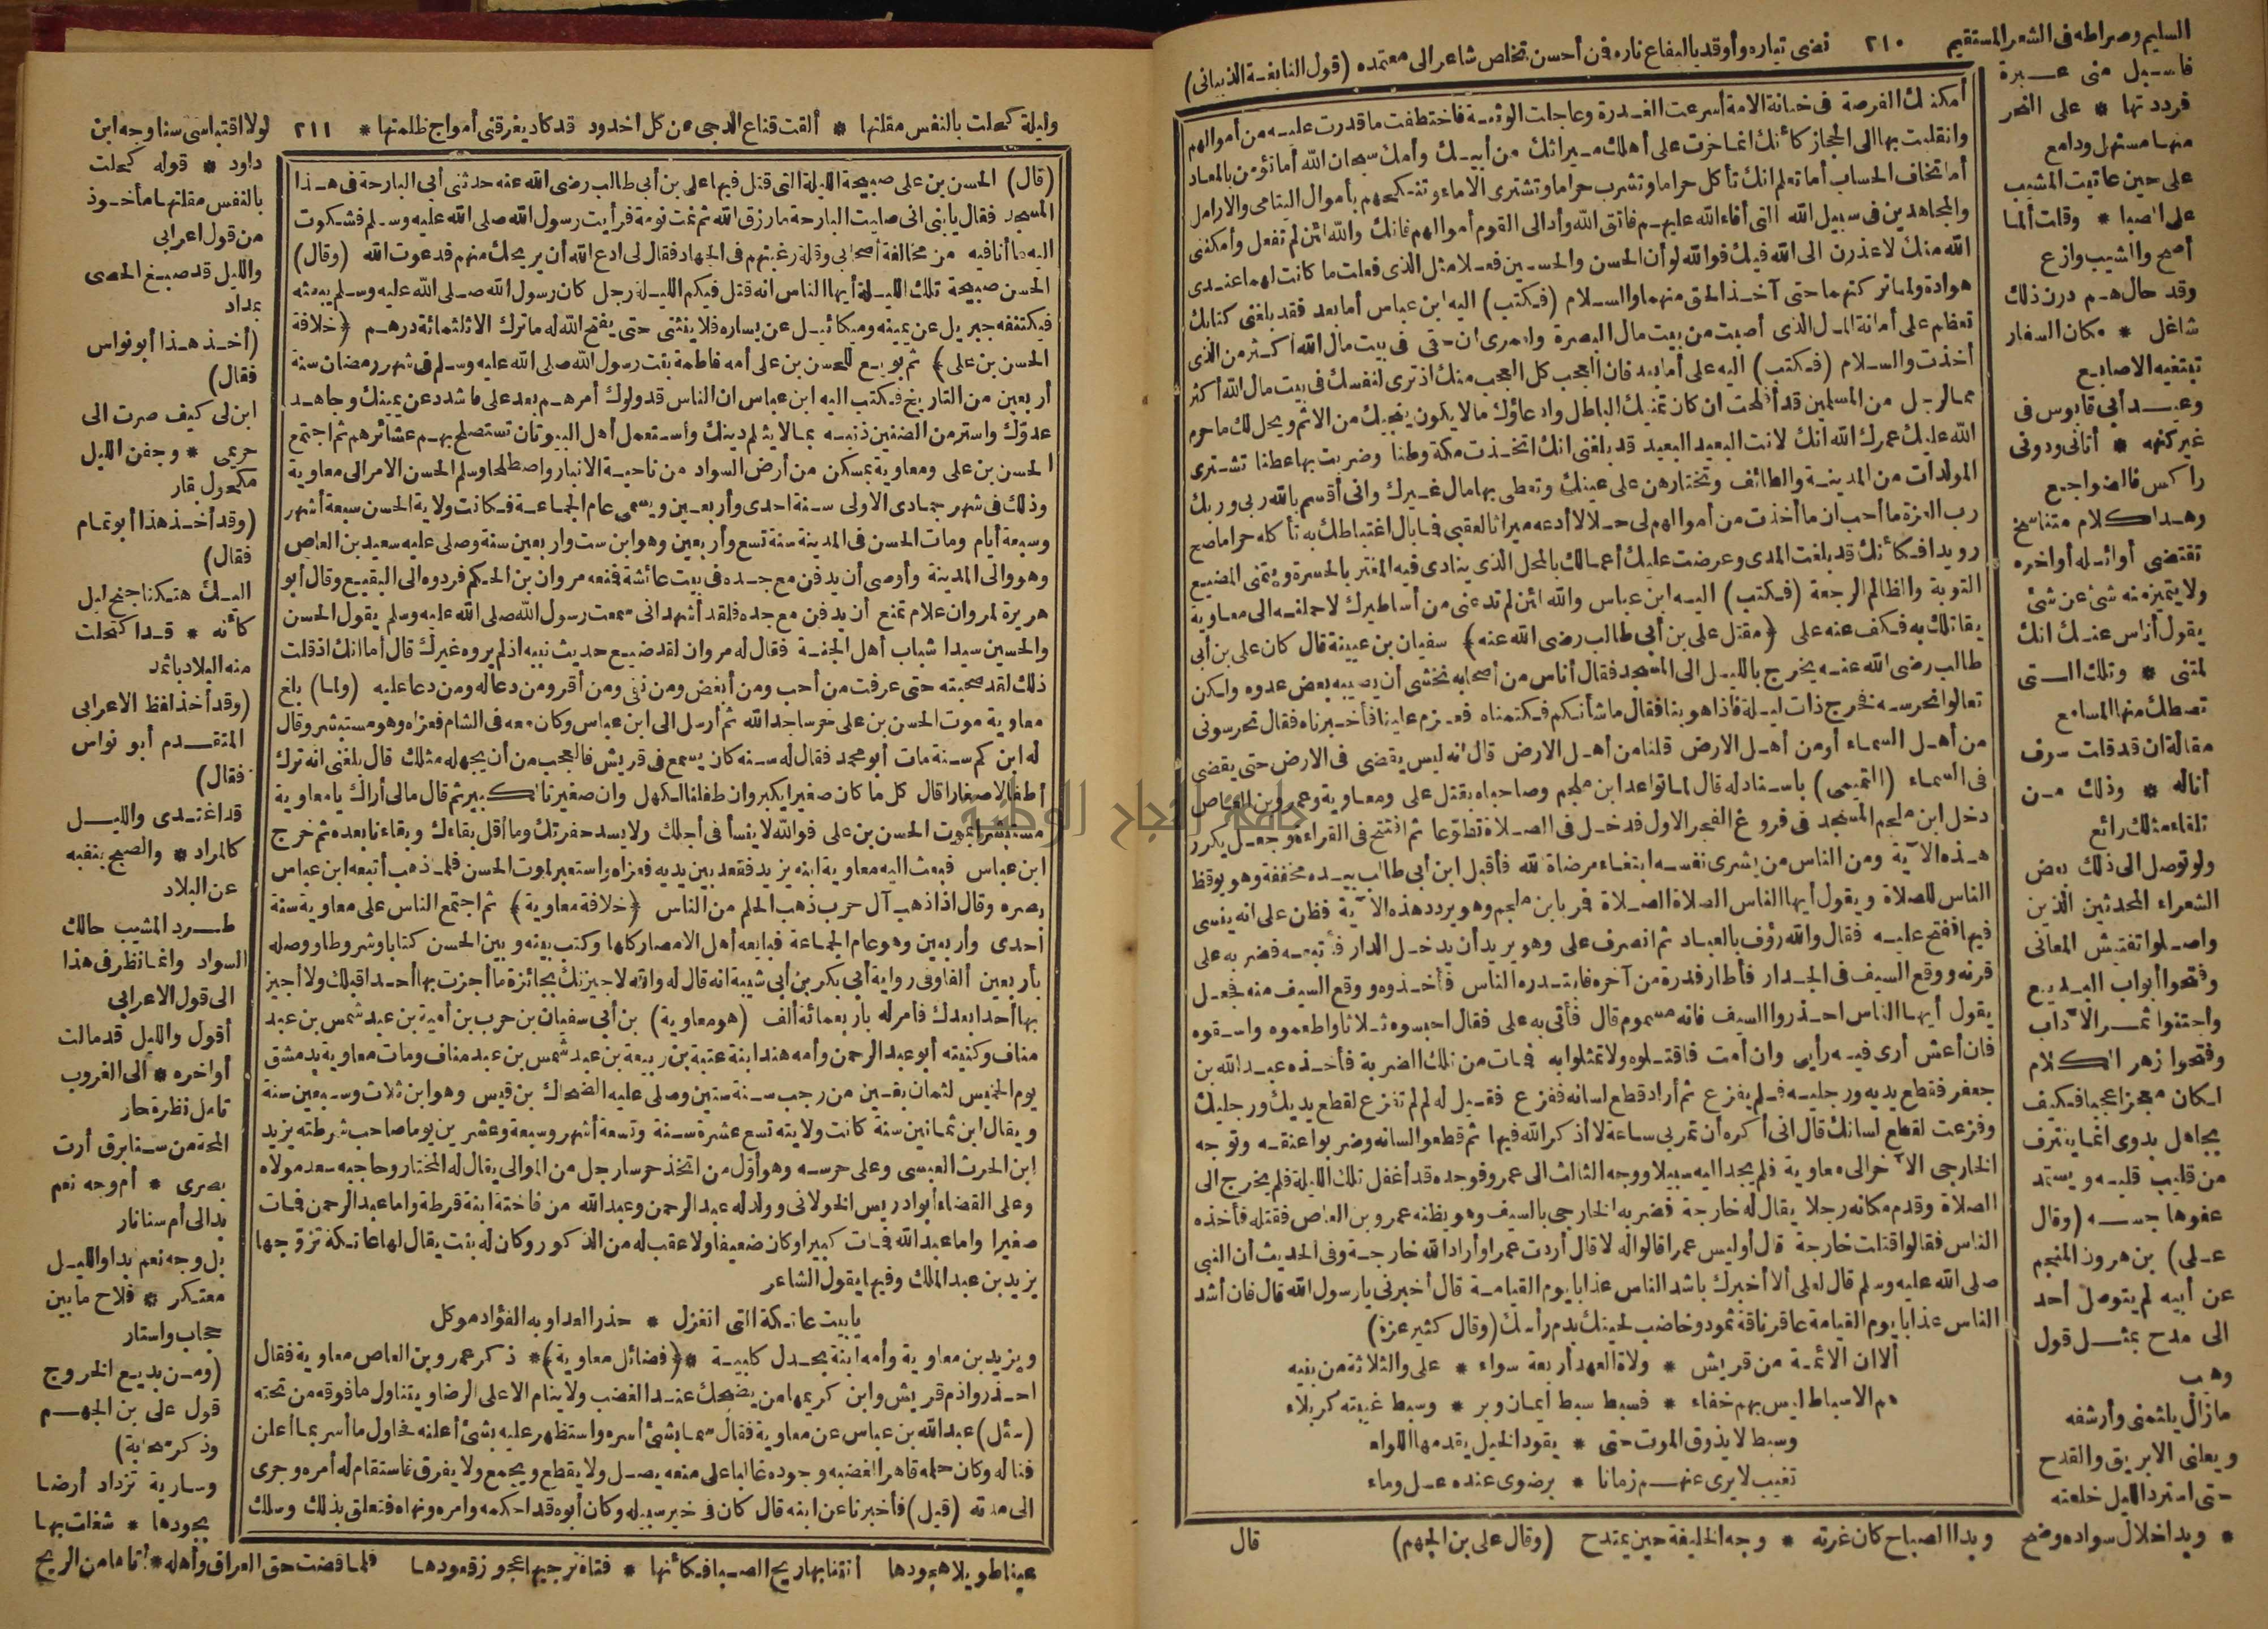 السليم وصراطه فى الشعر المستقيم ٢١٠ تضى تياره وأوقد باليفاع ناره فن أحسن تخلص شاعر الى معتمده (قول النابغة الذبيانى)
فاسبل منى عبرة
فرددتها * على النحر
منها مستهل ودامع
على حين عاتبت المشيب
على الصبا * وقلت ألما
أصح والشيب وازع
وقد حال هم دون ذلك
شاغل * مكان الشغاف
تبتغيه الاصابع
وعيد أبى قابوس فى
غير كنهه * أتانى ودونى
راكس فالضواجع
وهذا كلام متناسخ
تقتضى أوائله أواخره
ولا يتميز منه شئ عن شئ
يقول أناس عنك انك
لمتنى * وتلك التى
تصطك منها المسامع
مقالة ان قد قلت سوف
أناله * وذلك من
تلقاء مثلك رائع
ولو توصل الى ذلك بعض
الشعراء المحدثين الذين
واصلوا تفتيش المعانى
وفتحوا أبواب البديع
واجتنوا ثمر الآداب
وفتحوا زهر الكلام
لكان معجزا عجيبا فكيف
بجاهل بدوى انما يغترف
من قليب قلبه ويستمد
عفو هاجسه (وقال
على) بن هرون المنجم
عن أبيه لم يتوصل أحد
الى مدح بمثل قول
وهب
مازال يلثمنى وأرشفه
ويعلنى الابريق والقدح
حتى استرد الليل خلعته
* وبدا خلال سواده وضح وبدا الصباح كان غرته * وجه الخليفة حين يمتدح (وقال على بن الجهم) قال
أمكنتك الفرصة فى خيانة الامة أسرعت الغدرة وعاجلت الوثبة فاختطفت ما قدرت عليه من أموالهم
وانقلبت بها الى الحجاز كأنك انما خرت على أهلك ميراثك من أبيك وأمك سبحان الله أما تؤمن بالمعاد
أما تخاف الحساب أما تعلم انك تأكل حراما وتشرب حراما وتشترى الاماء وتنكحهم بأموال اليتامى والارامل
والمجاهدين فى سبيل الله التى أفاء الله عليهم فاتق الله وأد الى القوم أموالهم فانك والله لئن لم تفعل وأمكننى
الله منك لاعذرن الى الله فيك فوالله لو أن الحسن والحسين فعلا مثل الذى فعلت ما كانت لهما عندى
هوادة ولما تركتهما حتى آخذ الحق منهما والسلام (فكتب) اليه ابن عباس أما بعد فقد بلغنى كتابك
تعظم على أمانة المال الذى أصبت من بيت مال البصرة ولعمرى ان حقى فى بيت مال الله أكثر من الذى
أخذت والسلام (فكتب) اليه على أما بعد فان العجب كل العجب منك اذ ترى لنفسك فى بيت مال الله أكثر
مما لرجل من المسلمين قد أفلحت ان كان تمنيك الباطل وادعاؤك ما لا يكون ينجيك من الاثم ويحل لك ما حرم
الله عليك عمرك الله انك لانت البعيد البعيد قد بلغنى انك اتخذت مكة وطنا وضربت بها عطنا تشترى
المولدات من المدينة والطائف وتختارهن على عينك وتعطى بها مال غيرك وانى أقسم بالله ربى وربك
رب العزة ما أحب ان ما أخذت من أموالهم لى حلالا أدعه ميراثا لعقبى فما بال اغتباطك به تأكله حراما ضح
رويدا فكأنك قد بلغت المدى وعرضت عليك أعمالك بالمحل الذى ينادى فيه المغتر بالحسرة ويتمنى المضيع
التوبة والظالم الرجعة (فكتب) اليه ابن عباس والله لئن لم تدعنى من أساطيرك لاحملنه الى معاوية
يقاتلك به فكف عنه على ﴿مقتل على بن أبى طالب رضى الله عنه﴾ سفيان بن عيينة قال كان على بن أبى
طالب رضى الله عنه يخرج بالليل الى المسجد فقال أناس من أصحابه نخشى أن يصيبه بعض عدوه ولكن
تعالوا نحرسه فخرج ذات ليلة فاذا هو بنا فقال ما شأنكم فكتمناه فعزم علينا فأخبرناه فقال تحرسونى
من أهل السماء أو من أهل الارض قلنا من أهل الارض قال انه ليس يقضى فى الارض حتى يقضى
فى السماء (التميمى) باسناد له قال لما تواعد ابن ملجم وصاحباه بقتل على ومعاوية وعمرو بن العاص
دخل ابن ملجم المسجد فى فروغ الفجر الاول فدخل فى الصلاة تطوعا ثم افتتح فى القراءة وجعل يكرر
هذه الآية ومن الناس من يشرى نفسه ابتغاء مرضاة الله فأقبل ابن أبى طالب بيده مخفقة وهو يوقظ
الناس للصلاة ويقول أيها الناس الصلاة الصلاة فمر بابن ملجم وهو يردد هذه الآية فظن على انه ينسى
فيها ففتح عليه فقال والله رؤف بالعباد ثم انصرف على وهو يريد أن يدخل الدار فأتبعه فضربه على
قرنه ووقع السيف فى الجدار فأطار فدرة من آخره فابتدره الناس فأخذوه ووقع السيف منه فجعل
يقول أيها الناس احذروا السيف فانه مسموم قال فأتى به على فقال احبسوه ثلاثا واطعموه واسقوه
فان أعش أرى فيه رأيى وان أمت فاقتلوه ولا تمثلوا به فمات من تلك الضربة فأخذه عبد الله بن
جعفر فقطع يديه ورجليه فلم يفزع ثم أراد قطع لسانه ففزع فقيل له لم لم تفزع لقطع يديك ورجليك
وفزعت لقطع لسانك قال انى أكره أن تمر بى ساعة لا أذكر الله فيها ثم قطعوا لسانه وضربوا عنقه وتوجه
الخارجى الآخر الى معاوية فلم يجد اليه سبيلا ووجه الثالث الى عمرو فوجده قد أغفل تلك الليلة فلم يخرج الى
الصلاة وقدم مكانه رجلا يقال له خارجة فضربه الخارجى بالسيف وهو يظنه عمرو بن العاص فقتله فأخذه
الناس فقالوا قتلت خارجة قال أوليس عمرا قالوا له لا قال أردت عمرا وأراد الله خارجة وفى الحديث أن النبى
صلى الله عليه وسلم قال لعلى ألا أخبرك باشد الناس عذابا يوم القيامة قال أخبرنى يا رسول الله قال فان أشد
الناس عذابا يوم القيامة عاقر ناقة ثمود وخاضب لحيتك بدم رأسك (وقال كثير عزة)
ألا ان الائمة من قريش * ولاة العهد أربعة سواء * على والثلاثة من بنيه
هم الاسباط ليس بهم خفاء * فسبط سبط ايمان وبر * وسبط غيبته كربلاء
وسبط لا يذوق الموت حتى * يقود الخيل يقدمها اللواء
تغيب لا يرى عنهم زمانا * برضوى عنده عسل وماء
وليلة كحلت بالنفس مقلتها * ألقت قناع الدجى من كل اخدود قد كاد يغرقنى أمواج ظلمتها * ٢١١ لولا اقتباسى سنا وجه ابن
(قال) الحسن بن على صبيحة الليلة التى قتل فيها على بن أبى طالب رضى الله عنه حدثنى أبى البارحة فى هذا
المسجد فقال يا بنى انى صليت البارحة ما رزق الله ثم نمت نومة فرأيت رسول الله صلى الله عليه وسلم فشكوت
اليه ما أنا فيه من مخالفة أصحابى وقلة رغبتهم فى الجهاد فقال لى ادع الله أن يريحك منهم فدعوت الله (وقال)
الحسن صبيحة تلك الليلة أيها الناس انه قتل فيكم الليلة رجل كان رسول الله صلى الله عليه وسلم يبعثه
فيكتنفه جبريل عن يمينه وميكائيل عن يساره فلا ينثنى حتى يفتح الله له ما ترك الا ثلثمائة درهم ﴿خلافة
الحسن بن على﴾ ثم بويع للحسن بن على أمه فاطمة بنت رسول الله صلى الله عليه وسلم فى شهر رمضان سنة
أربعين من التاريخ فكتب اليه ابن عباس ان الناس قد ولوك أمرهم بعد على فاشدد عن يمينك وجاهد
عدوك واستر من الضنين ذنبه بما لا يثلم دينك واستعمل أهل البيوتات تستصلح بهم عشائرهم ثم اجتمع
الحسن بن على ومعاوية بمسكن من أرض السواد من ناحية الانبار واصطلحا وسلم الحسن الامر الى معاوية
وذلك فى شهر جمادى الاولى سنة احدى وأربعين ويسمى عام الجماعة فكانت ولاية الحسن سبعة أشهر
وسبعة أيام ومات الحسن فى المدينة سنة تسع وأربعين وهو ابن ست وأربعين سنة وصلى عليه سعيد بن العاص
وهو والى المدينة وأوصى أن يدفن مع جده فى بيت عائشة فمنعه مروان بن الحكم فردوه الى البقيع وقال أبو
هريرة لمروان علام تمنع أن يدفن مع جده فلقد أشهد انى سمعت رسول الله صلى الله عليه وسلم يقول الحسن
والحسين سيدا شباب أهل الجنة فقال له مروان لقد ضيع حديث نبيه اذ لم يروه غيرك قال أما انك اذ قلت
ذلك لقد صحبته حتى عرفت من أحب ومن أبغض ومن نفى ومن أقر ومن دعا له ومن دعا عليه (ولما) بلغ
معاوية موت الحسن بن على خر ساجدا لله ثم أرسل الى ابن عباس وكان معه فى الشام فعزاه وهو مستبشر وقال
له ابن كم سنة مات أبو محمد فقال له سنه كان يسمع فى قريش فالعجب من أن يجهله مثلك قال بلغنى انه ترك
أطفالا صغارا قال كل ما كان صغيرا يكبر وان طفلنا لكهل وان صغيرنا لكبير ثم قال مالى أراك يا معاوية
مستبشرا بموت الحسن بن على فوالله لا ينسأ فى أجلك ولا يسد حفرتك وما أقل بقاءك وبقاءنا بعده ثم خرج
ابن عباس فبعث اليه معاوية ابنه يزيد فقعد بين يديه فعزاه واستعبر لموت الحسن فلما ذهب أتبعه ابن عباس
بصره وقال اذا ذهب آل حرب ذهب الحلم من الناس ﴿خلافة معاوية﴾ ثم اجتمع الناس على معاوية سنة
أحدى وأربعين وهو عام الجماعة فبايعه أهل الامصار كلها وكتب بينه وبين الحسن كتابا وشروطا ووصله
بأربعين ألفا وفى رواية أبى بكر بن أبى شيبة انه قال له والله لاجيزنك بجائزة ما أجزت بها أحدا قبلك ولا أجيز
بها أحدا بعدك فأمر له بأربعمائة ألف (هو معاوية) بن أبى سفيان بن حرب بن أمية بن عبد شمس بن عبد
مناف وكنيته أبو عبد الرحمن وأمه هند ابنة عتبة بن ربيعة بن عبد شمس بن عبد مناف ومات معاوية بدمشق
يوم الخميس لثمان بقين من رجب سنة ستين وصلى عليه الضحاك بن قيس وهو ابن ثلاث وسبعين سنة
ويقال ابن ثمانين سنة كانت ولايته تسع عشرة سنة وتسعة أشهر وسبعة وعشرين يوما صاحب شرطته يزيد
ابن الحرث العبسى وعلى حرسه وهو أول من اتخذ حرسا رجل من الموالى يقال له المختار وحاجبه سعد مولاه
وعلى القضاء أبو ادريس الخولانى وولد له عبد الرحمن وعبد الله من فاختة ابنة قرظة واما عبد الرحمن فمات
صغيرا واما عبد الله فمات كبيرا وكان ضعيفا ولا عقب له من الذكور وكان له بنت يقال لها عاتكة تزوجها
يزيد بن عبد الملك وفيها يقول الشاعر
يا بيت عاتكة التى اتعزل * حذر العدا وبه الفؤاد موكل
ويزيد بن معاوية وأمه ابنة بحدل كلبية *﴿فضائل معاوية﴾* ذكر عمرو بن العاص معاوية فقال
احذروا آدم قريش وابن كريمها من يضحك عند الغضب ولا ينام الا على الرضا ويتناول ما فوقه من تحته
(سئل) عبد الله بن عباس عن معاوية فقال سما بشئ أسره واستظهر عليه بشئ أعلنه فحاول ما أسر بما أعلن
فناله وكان حلمه قاهرا لغضبه وجوده غالبا على منعه يصل ولا يقطع ويجمع ولا يفرق فاستقام له أمره وجرى
الى مدته (قيل) فأخبرنا عن ابنه قال كان فى خير سبيله وكان أبوه قد احكمه وامره ونهاه فتعلق بذلك وسلك
داود * قوله كحلت
بالنفس مقلتها مأخوذ
من قول اعرابى
والليل قد صبغ الحصى
بمداد
(أخذ هذا أبو نواس
فقال)
ابن لى كيف صرت الى
حريمى * وجفن الليل
مكحول بقار
(وقد أخذ هذا أبو تمام
فقال)
اليك هتكنا جنح ليل
كأنه * قد اكتحلت
منه البلاد باثمد
(وقد أخذ لفظ الاعرابى
المتقدم أبو نواس
فقال)
قد اغتدى والليل
كالمداد * والصبح ينفيه
عن البلاد
طرد المشيب حالك
السواد وانما نظر فى هذا
الى قول الاعرابى
أقول والليل قد مالت
أواخره * الى الغروب
تأمل نظرة حار
المحة من سنا برق أرت
بصرى * أم وجه نعم
بدا لى أم سنا نار
بل وجه نعم بدا والليل
معتكر * فلاح ما بين
حجاب واستار
(ومن بديع الخروج
قول على بن الجهم
وذكر سحابة)
وسارية تزداد أرضا
بجودها * شغلت بها
عينا طويلا هجودها أتتنا بها ريح الصبا فكأنها * فتاة ترجيها عجوز تقودها فلما قضت حق العراق وأهله * أتاها من الريح
جامعة النجاح الوطنية